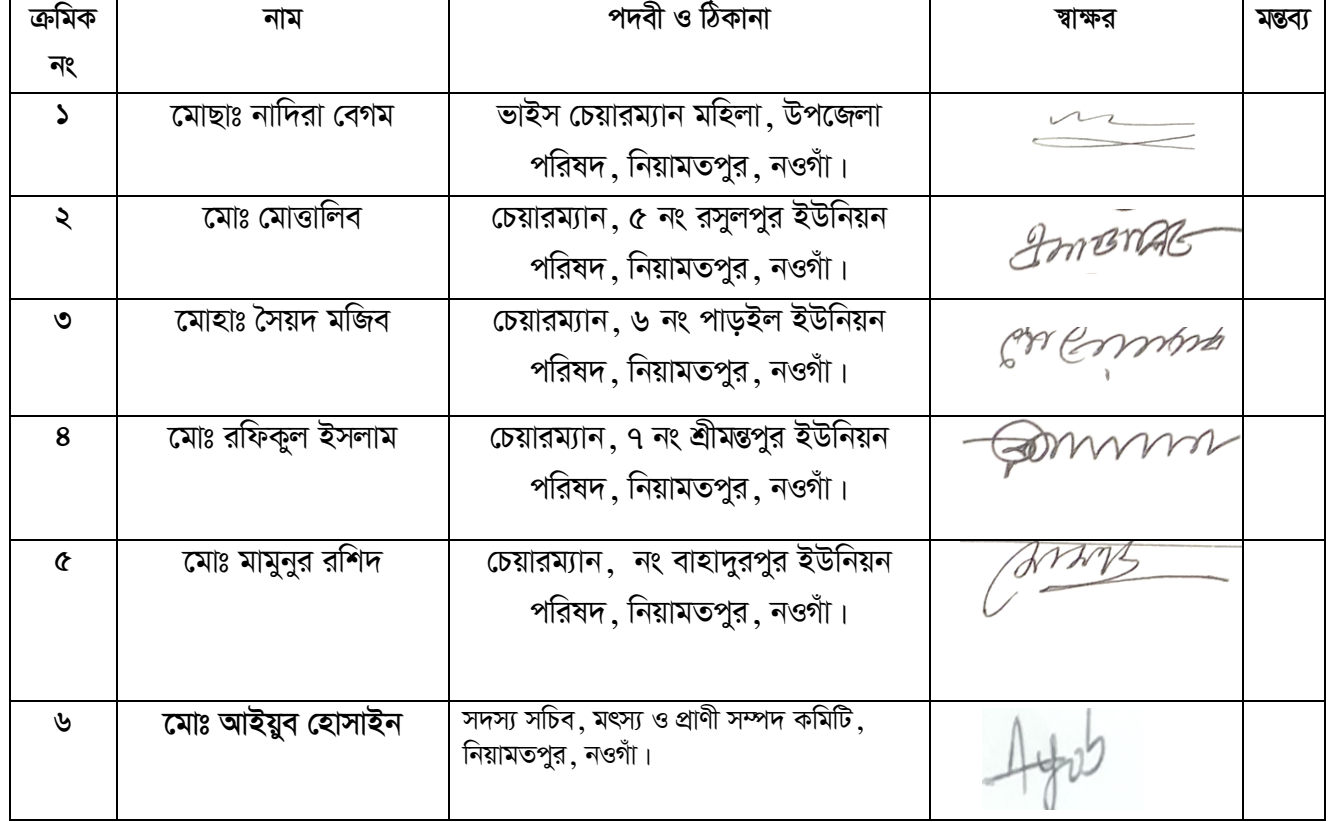 ক্রমিক নং নাম পদবী ও ঠিকানা স্বাক্ষর মন্তব্য
১ মোছাঃ নাদিরা বেগম ভাইস চেয়ারম্যান মহিলা, উপজেলা
পরিষদ, নিয়ামতপুর, নওগাঁ।
২ মোঃ মোত্তালিব চেয়ারম্যান, ৫ নং রসুলপুর ইউনিয়ন
পরিষদ, নিয়ামতপুর, নওগাঁ।
৩ মোহাঃ সৈয়দ মজিব চেয়ারম্যান, ৬ নং পাড়ইল ইউনিয়ন
পরিষদ, নিয়ামতপুর, নওগাঁ।
৪ মোঃ রফিকুল ইসলাম চেয়ারম্যান, ৭ নং শ্রীমন্তপুর ইউনিয়ন
পরিষদ, নিয়ামতপুর, নওগাঁ।
৫ মোঃ মামুনুর রশিদ চেয়ারম্যান, নং বাহাদুরপুর ইউনিয়ন
পরিষদ, নিয়ামতপুর, নওগাঁ।
৬ মোঃ আইয়ুব হোসাইন সদস্য সচিব, মৎস্য ও প্রাণী সম্পদ কমিটি,
নিয়ামতপুর, নওগাঁ।
Ayob